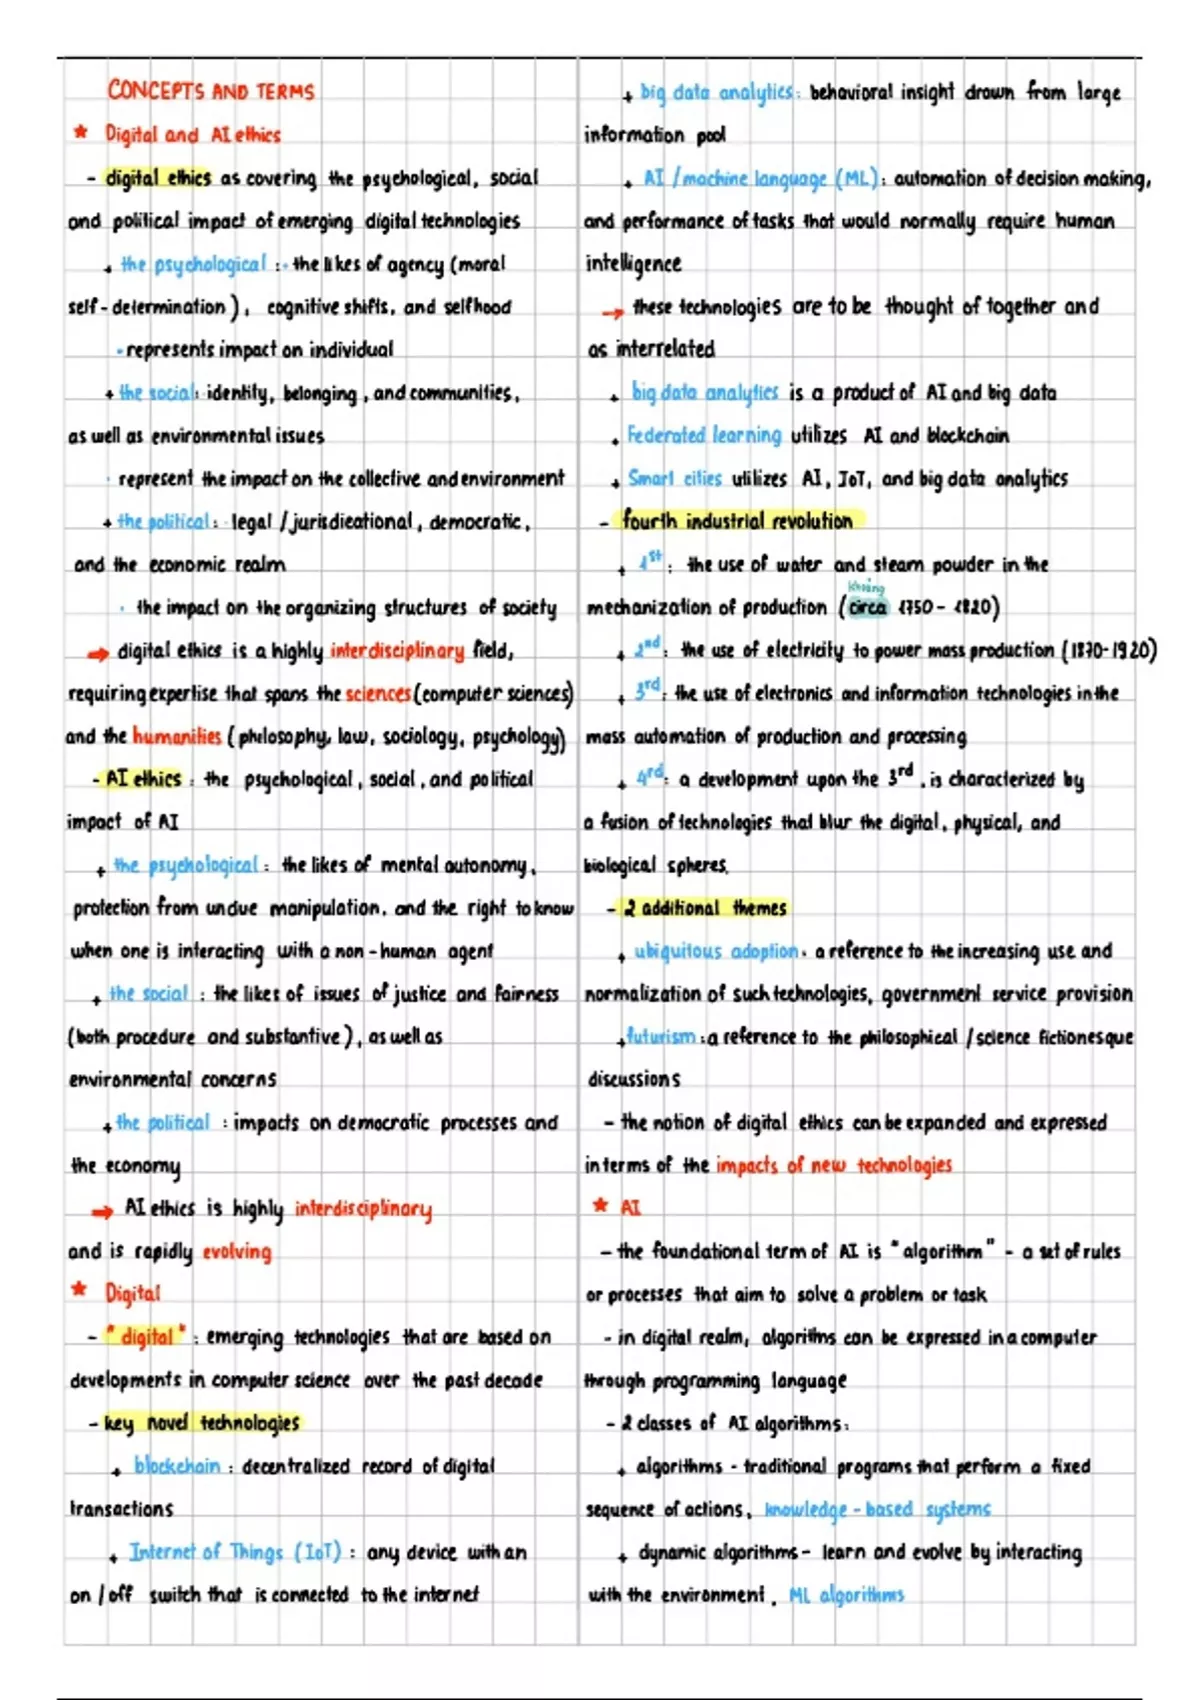 CONCEPTS AND TERMS
★ Digital and AI ethics
- digital ethics as covering the psychological, social
and political impact of emerging digital technologies
+ the psychological : · the likes of agency (moral
self-determination), cognitive shifts, and selfhood
· represents impact on individual
+ the social: · identity, belonging, and communities,
as well as environmental issues
· represent the impact on the collective and environment
+ the political: · legal / jurisdicational, democratic,
and the economic realm
· the impact on the organizing structures of society
→ digital ethics is a highly interdisciplinary field,
requiring expertise that spans the sciences (computer sciences)
and the humanities (philosophy, law, sociology, psychology)
- AI ethics : the psychological, social, and political
impact of AI
+ the psychological : the likes of mental autonomy,
protection from undue manipulation, and the right to know
when one is interacting with a non-human agent
+ the social : the likes of issues of justice and fairness
(both procedure and substantive), as well as
environmental concerns
+ the political : impacts on democratic processes and
the economy
→ AI ethics is highly interdisciplinary
and is rapidly evolving
★ Digital
- "digital" : emerging technologies that are based on
developments in computer science over the past decade
- key novel technologies
+ blockchain : decentralized record of digital
transactions
+ Internet of Things (IoT) : any device with an
on / off switch that is connected to the internet
+ big data analytics: behavioral insight drawn from large
information pool
+ AI / machine language (ML): automation of decision making,
and performance of tasks that would normally require human
intelligence
→ these technologies are to be thought of together and
as interrelated
+ big data analytics is a product of AI and big data
+ Federated learning utilizes AI and blockchain
+ Smart cities utilizes AI, IoT, and big data analytics
- fourth industrial revolution
+ 1st : the use of water and steam powder in the
khoảng
mechanization of production (circa 1750 - 1820)
+ 2nd : the use of electricity to power mass production (1870-1920)
+ 3rd : the use of electronics and information technologies in the
mass automation of production and processing
+ 4rd : a development upon the 3rd, is characterized by
a fusion of technologies that blur the digital, physical, and
biological spheres.
- 2 additional themes
+ ubiquitous adoption: a reference to the increasing use and
normalization of such technologies, government service provision
+ futurism : a reference to the philosophical / science fictionesque
discussions
- the notion of digital ethics can be expanded and expressed
in terms of the impacts of new technologies
★ AI
- the foundational term of AI is "algorithm" - a set of rules
or processes that aim to solve a problem or task
- in digital realm, algorithms can be expressed in a computer
through programming language
- 2 classes of AI algorithms:
+ algorithms - traditional programs that perform a fixed
sequence of actions, knowledge-based systems
+ dynamic algorithms - learn and evolve by interacting
with the environment, ML algorithms